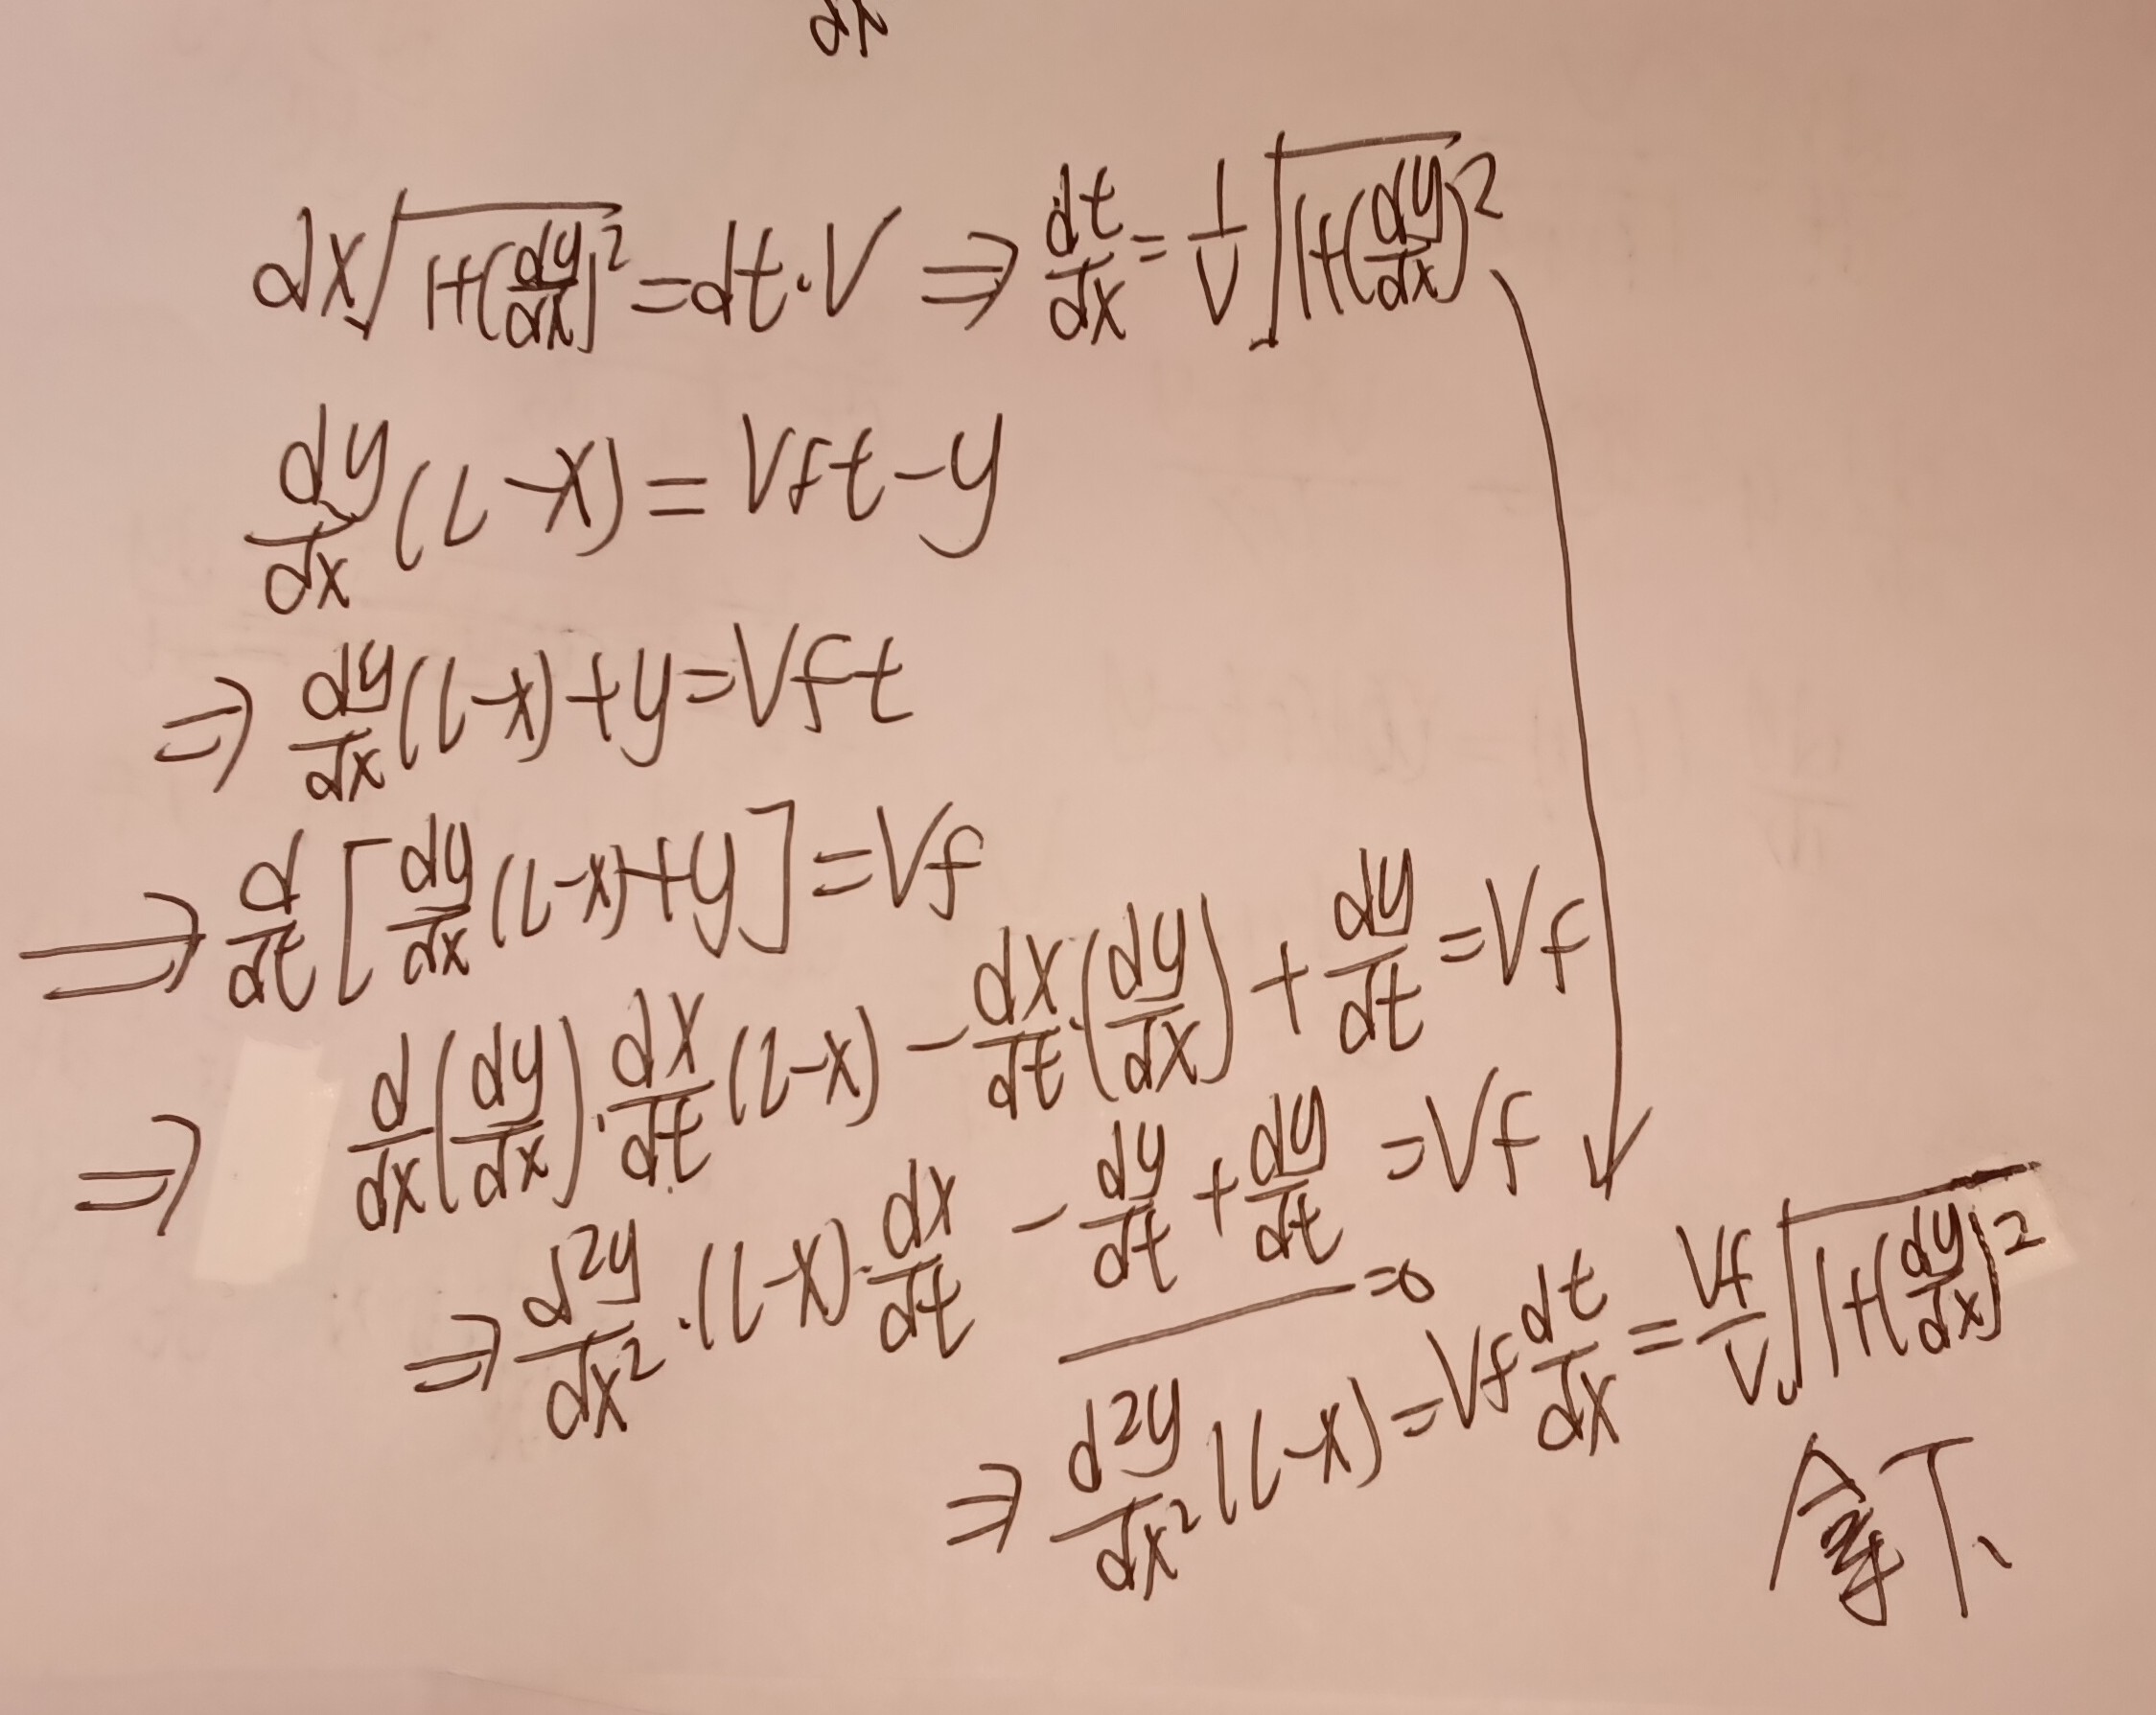 dx
dx√(1+(dy/dx)²) = dt·V ⇒ dt/dx = 1/V √(1+(dy/dx)²)
dy/dx (L-x) = Vft-y
⇒ dy/dx (L-x)+y=Vft
⇒ d/dt [dy/dx (L-x)+y] = Vf
⇒ d/dx (dy/dx)·dx/dt (L-x) - dx/dt·(dy/dx) + dy/dt = Vf
⇒ d²y/dx² ·(L-x)·dx/dt - dy/dt + dy/dt = Vf
=0
⇒ d²y/dx² (L-x) = Vf dt/dx = Vf/V √(1+(dy/dx)²)
拿下